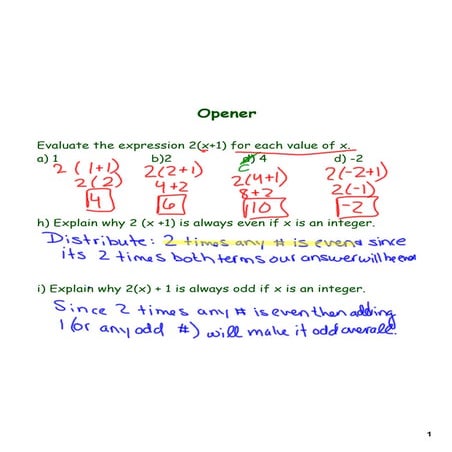 Opener
Evaluate the expression 2(x+1) for each value of x.
a) 1 b)2 c 4 d) -2
2(1+1) 2(2+1) 2(4+1) 2(-2+1)
2(2) 4+2 8+2 2(-1)
4 6 10 -2
h) Explain why 2 (x +1) is always even if x is an integer.
Distribute: 2 times any # is even & since
its 2 times both terms our answer will be even
i) Explain why 2(x) + 1 is always odd if x is an integer.
Since 2 times any # is even then adding
1 (or any odd #) will make it odd overall.
1